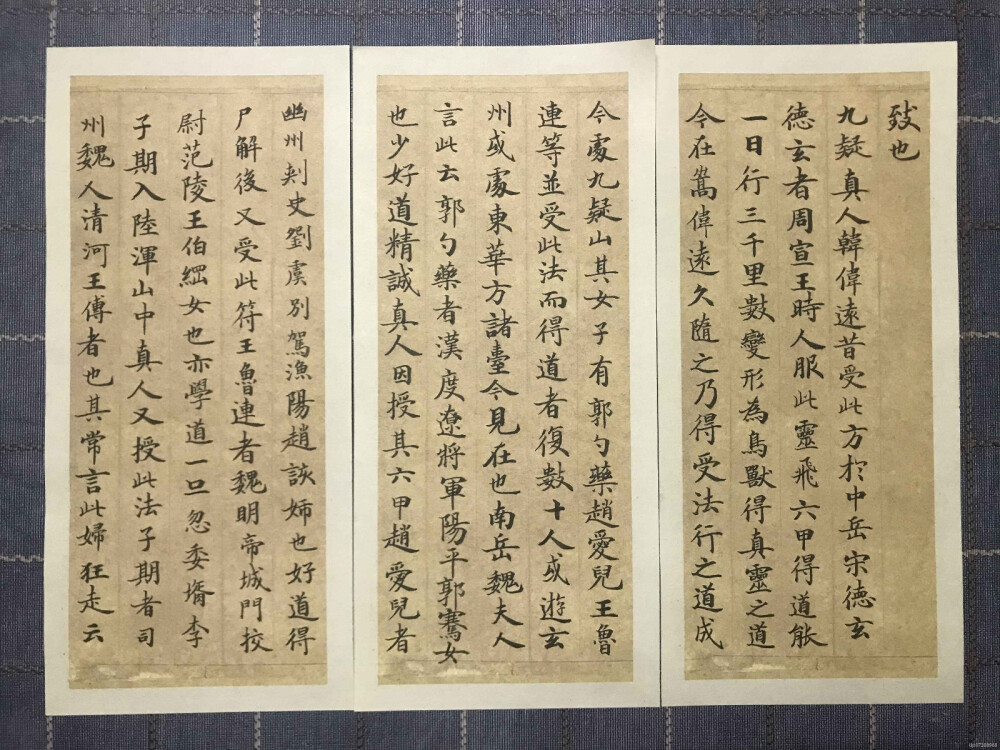 致也
九疑真人韓偉遠昔受此方於中岳宋德玄
德玄者周宣王時人服此靈飛六甲得道能
一日行三千里數變形為鳥獸得真靈之道
今在嵩偉遠久隨之乃得受法行之道成
今處九疑山其女子有郭勺藥趙愛兒王魯
連等並受此法而得道者復數十人或遊玄
州或處東華方諸臺今見在也南岳魏夫人
言此云郭勺藥者漢度遼將軍陽平郭騫女
也少好道精誠真人因授其六甲趙愛兒者
幽州刺史劉虞別駕漁陽趙該姊也好道得
尸解後又受此符王魯連者魏明帝城門挍
尉范陵王伯綱女也亦學道一旦忽委壻李
子期入陸渾山中真人又授此法子期者司
州魏人清河王傳者也其常言此婦狂走云